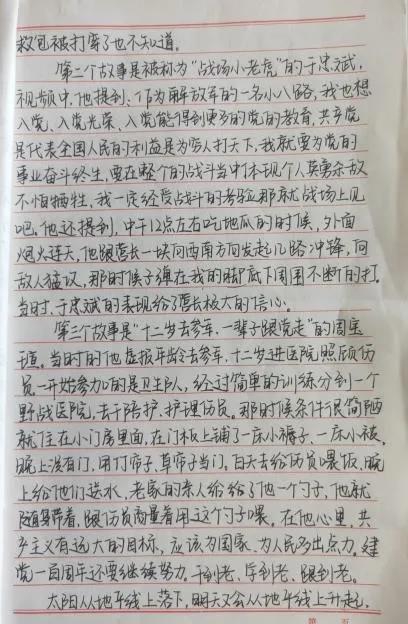 救包被打穿了也不知道。
第二个故事是被称为“战场小老虎”的于忠斌,
视频中,他提到、作为解放军的一名小八路,我也想
入党、入党光荣、入党能得到更多的党的教育,共产党
是代表全国人民的利益是为穷人打天下,我就要为党的
事业奋斗终生,要在整个的战斗当中体现个人英勇杀敌
不怕牺牲,我一定经受战斗的考验那就战场上见
吧,他还提到,中午12点左右吃地瓜的时候,外面
烟火连天,他跟营长一块向西南方向发起几路冲锋,向
敌人猛攻,那时候子弹在我的脚底下周围不断的打,
当时,于忠斌的表现给了营长极大的信心。
第三个故事是“十二岁去参军,一辈子跟党走”的周
。当时的他虚报年龄去参军,十二岁进医院照顾伤
员一开始参加的是卫生队,经过简单的训练分到一个
野战医院,去干陪护、护理伤员。那时候条件很简陋
就住在小门房里面,在门板上铺了一床小褥子,一床小被,
晚上没有门,用竹帘子,草帘子当门,白天去给伤员喂饭,晚
上给他们送水,老家的亲人给给了他一个勺子,他就
随身带着,跟伤员商量着用这个勺子喂。在他心里,共
产主义有远大的目标,应该为国家、为人民多出点力,建
党一百周年还要继续努力。干到老、学到老、跟到老。
太阳从地平线上落下,明天又会从地平线上升起,
第 页